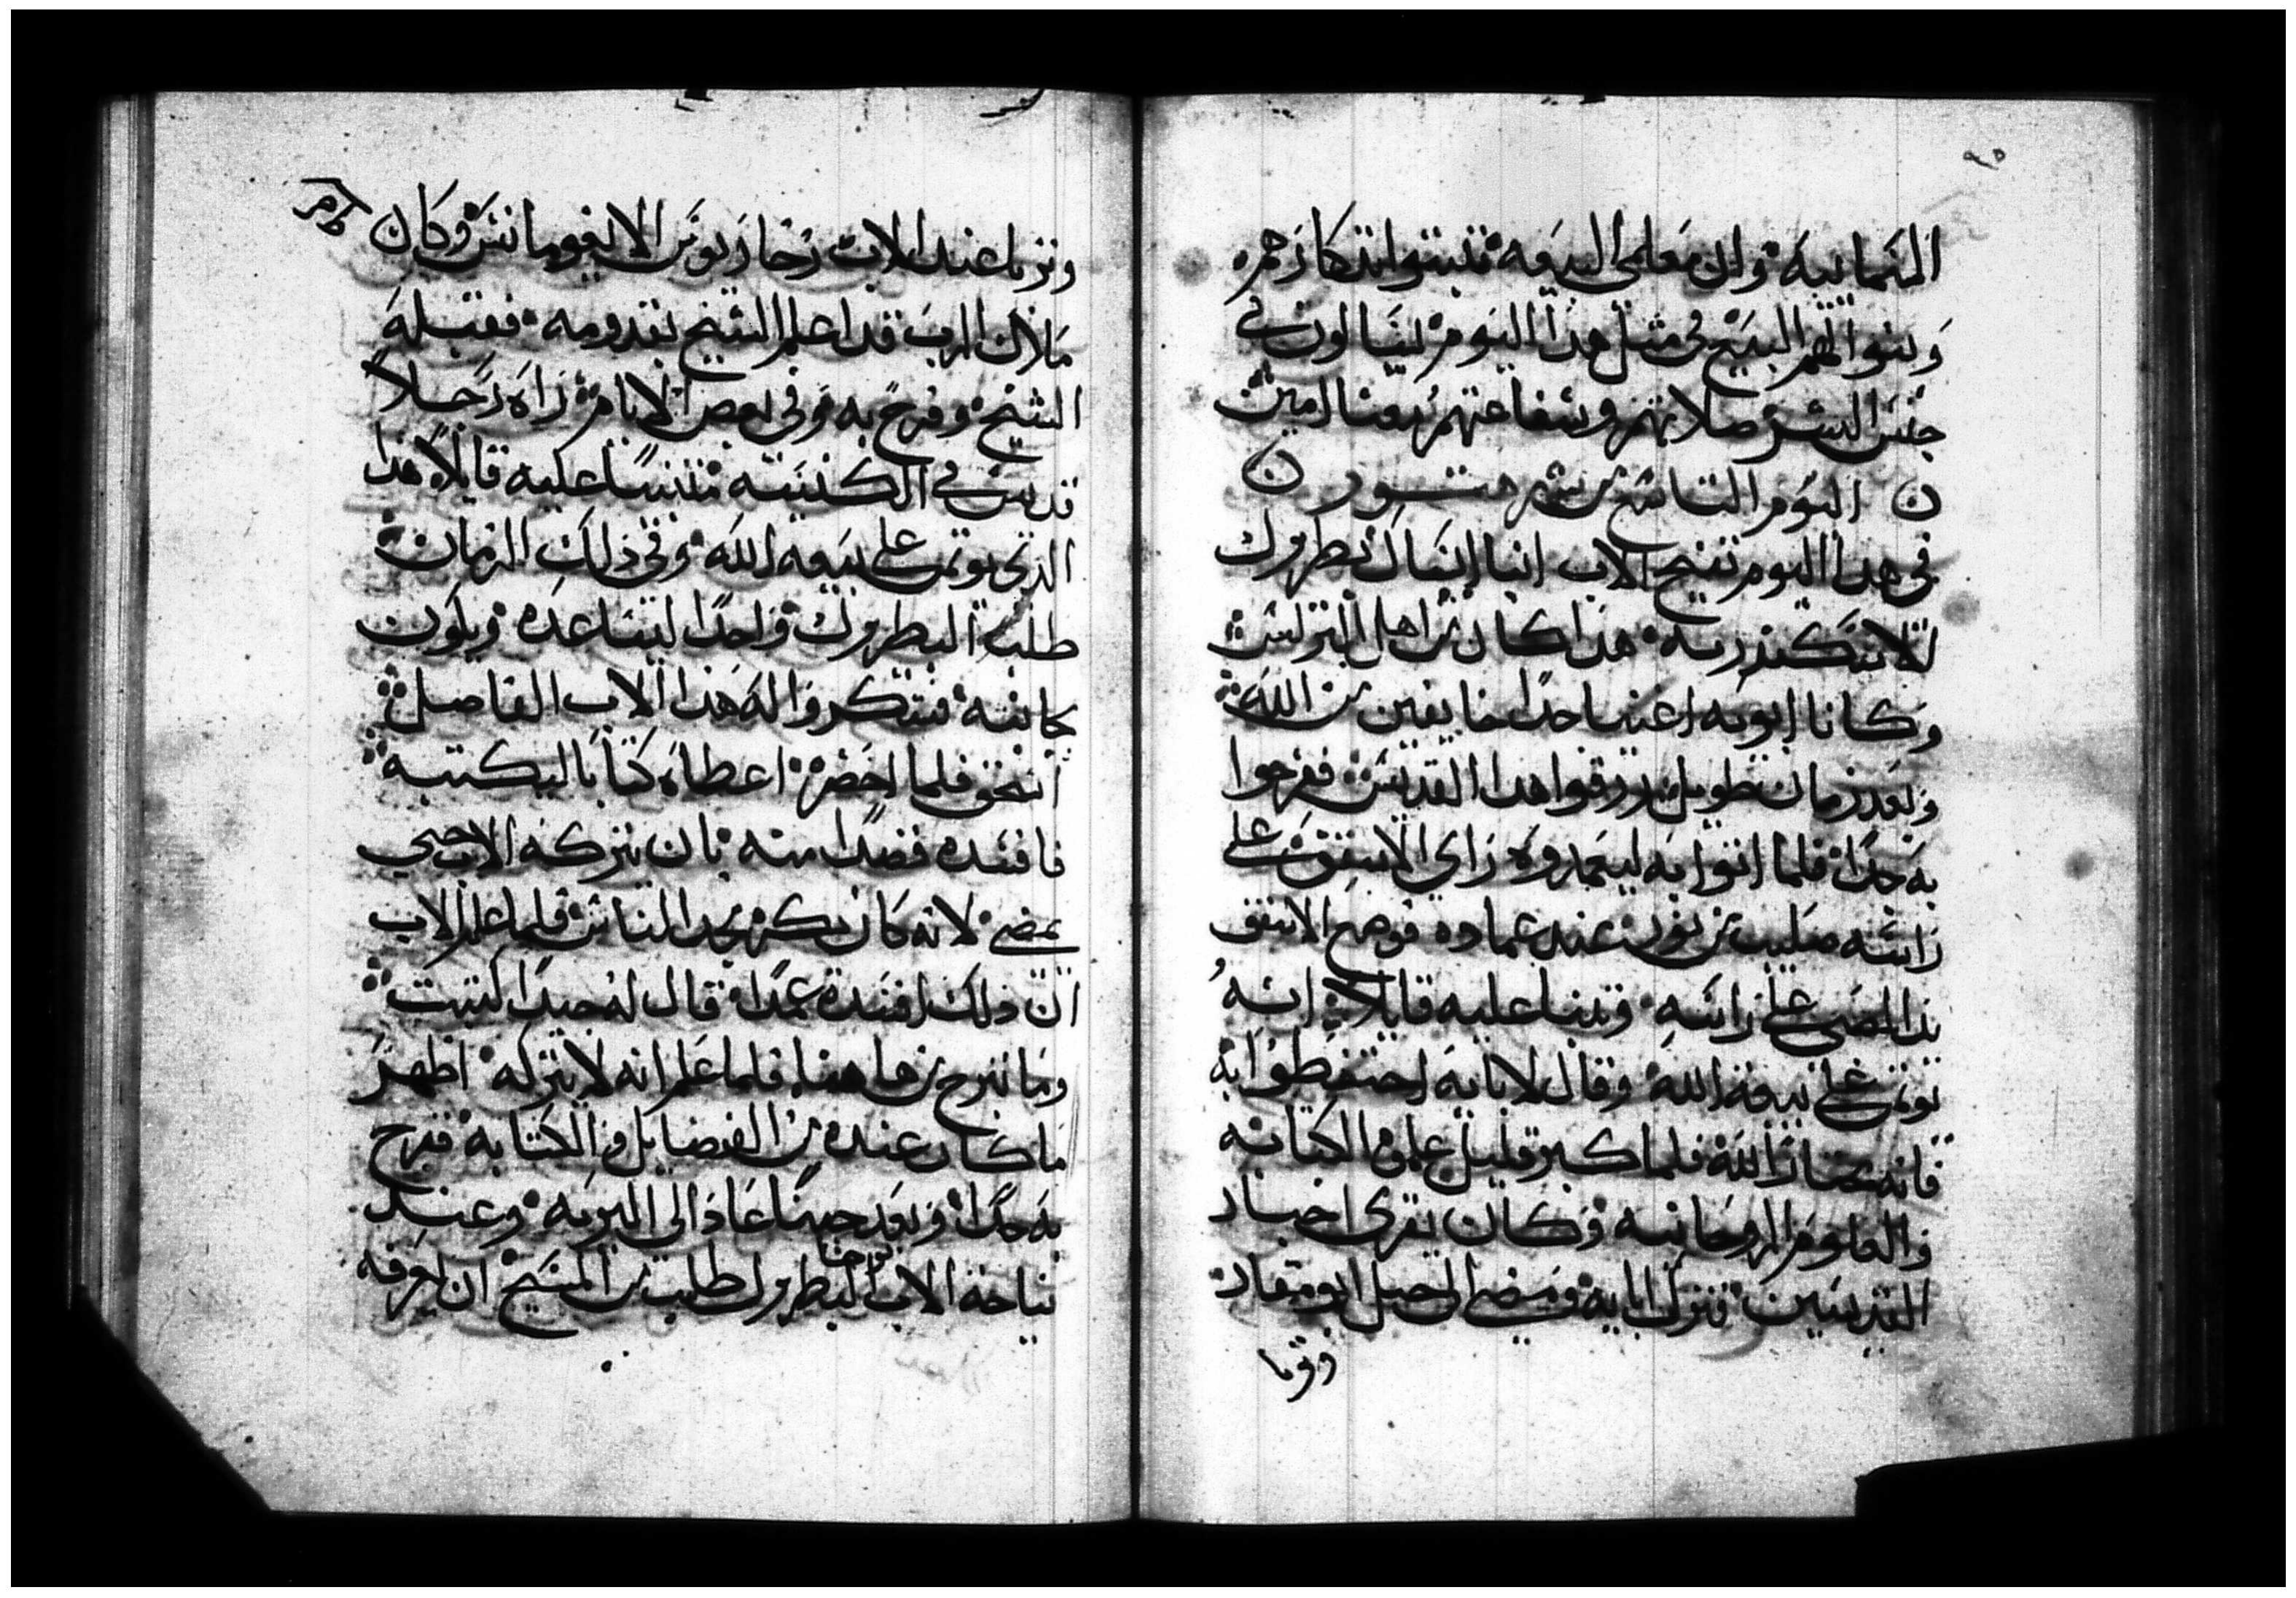 ٩٥
السمائيه وان معلمي البيعه تثبتوا تدكارهم
وبنوا لهم البيع في مثل هدا اليوم ليسالون في
جنس البشر صلاتهم وشفاعتهم معنا امين
ن اليوم التاسع من شهر هتور ن
في هدا اليوم تنيح الاب انبا ايساك بطروك
الاسكندريه هدا كان من اهل البرلس
وكانا ابويه اغنيا جدا خايفين من الله
وبعد زمان طويل رزقوا هدا القديس ففرحوا
به جدا فلما اتوا به ليعمدوه راي الاسقف على
راسه صليب من نور عند عماده فوضع الاسقف
يد الصبي على راسه وتنبا عليه قايلا انه
يوتمن على بيعة الله وقال لابايه احتفظوا به
فانه مختار الله فلما كبر قليل علموه الكتابه
والعلوم الروحانيه وكان يقرى اخبار
القديسين فترك ابايه ومضى الى جبل ابو مقار
وترنا
وترنا عند الاب زخاريوس الايغومانس وكان
ملاك الرب قد اعلم الشيخ بقدومه فقبله
الشيخ وفرح به وفي بعض الايام راه رجلا
قديس في الكنيسه متنبيا عليه قايلا هدا
الدي يوتمن على بيعه الله وفي ذلك الزمان
طلب البطروك واحدا ليساعده ويكون
كاتبه فشكروا له هدا الاب الفاضل
اسحق فلما احضر اعطاه كتابا ليكتبه
فافسده قصدا منه بان يتركه الاب حتي
يمضي لانه كان يكره مجد الناس فلما علم الاب
ان ذلك افسده عمدا قال له جيدا كتبت
وما تبرح من هاهنا فلما علم انه لا يتركه اظهر
ما كان عنده من الفضايل والكتابه ففرح
به جدا وبعد حينا عاد الى البريه وعند
نياحة الاب يوحنا البطروك طلب من المسيح ان يعرفه